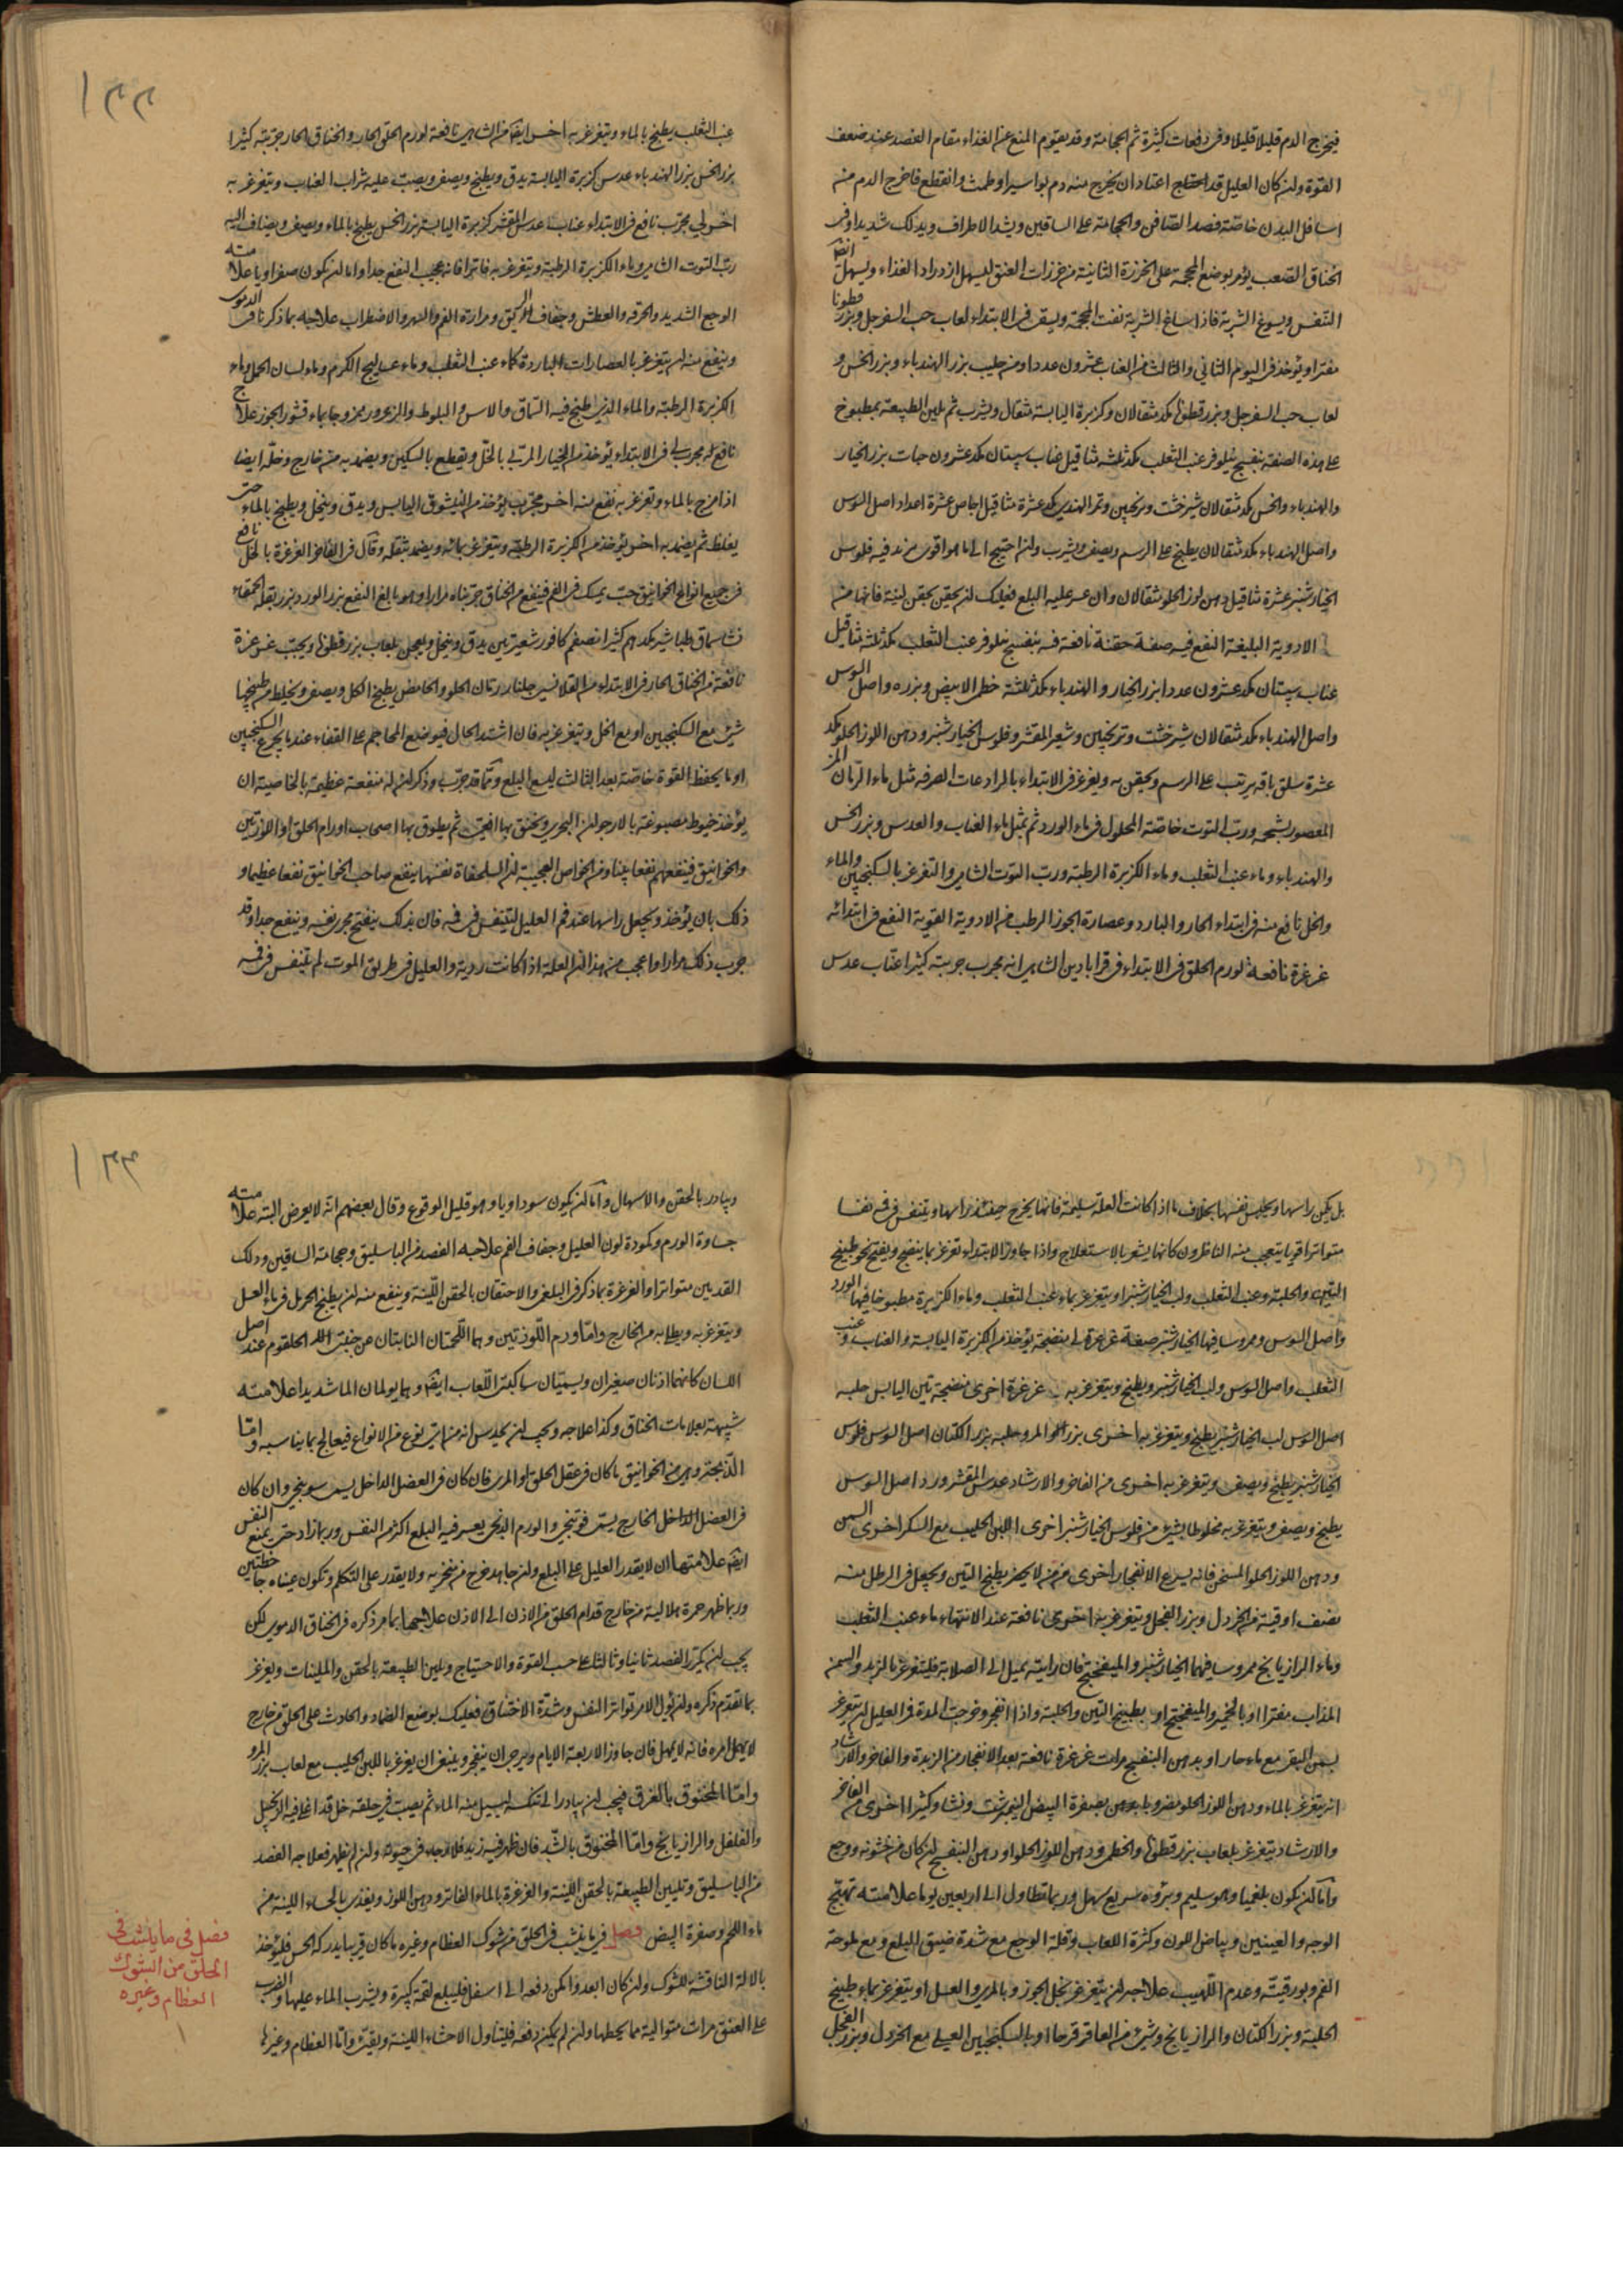 فيخرج الدم قليلا قليلا وفى دفعات كثيرة ثم الحجامة وقد يقوم المنع عن الغذاء مقام الفصد عند ضعف
القوة وان كان العليل قد اعتاد ان يخرج منه دم بواسير او طمث وانقطع فاخرج الدم من
اسافل البدن خاصة فصد الصافن والحجامة على الساقين ويشد الاطراف ويدلك شديدا وفى
الخناق الصعب يؤمر بوضع المحجمة على الخرزة الثانية من خرزات العنق ليسهل ازدراد الغذاء ويسهل ايضا
التنفس ويسوغ الشربة فاذا ساغ الشربة نفت المحجمة ويسقى فى الابتداء لعاب حب السفرجل وبزر قطونا
مفترا ويؤخذ فى اليوم الثانى والثالث من العناب عشرون عددا ومن حليب بزر الهندباء وبزر الخس و
لعاب حب السفرجل وبزر قطونا مكد مثقالان وكزبرة اليابسة مثقال ويشرب ثم تلين الطبيعة بمطبوخ
على هذه الصفة بنفسج نيلوفر عنب الثعلب مكد ثلثة مثاقيل عناب سپستان مكد عشرون حبات بزر الخيار
والهندباء والخس مكد مثقالان شيرخشت وترنجبين وتمر الهندى مكد عشرة مثاقيل اجاص عشرة اعداد اصل السوس
واصل الهندباء مكد مثقالان يطبخ على الرسم ويصفى ويشرب وان احتيج الى ما هو اقوى من زيد فيه فلوس
الخيار شنبر عشرة مثاقيل دهن لوز الحلو مثقالان وان عسر عليه البلع فعليك ان يحقن بحقن لينة فانها من
الادوية البليغة النفع فيه صفة حقنة نافعة فيه بنفسج نيلوفر عنب الثعلب مكد ثلثة مثاقيل
عناب سپستان مكد عشرون عددا بزر الخيار والهندباء مكد ثلثة خطمى الابيض وبزره واصل السوس
واصل الهندباء مكد مثقالان شيرخشت وترنجبين وشعير المقشر وفلوس الخيار شنبر ودهن اللوز الحلو مكد
عشرة سلق باقة يرتب على الرسم ويحقن به ويغرغر فى الابتداء بالرادعات الصرفه مثل ماء الرمان المز
المعصور بشحمه ورب التوت خاصة المحلول فى ماء الورد ثم بمثل ماء العناب والعدس وبزر الخس
والهندباء وماء عنب الثعلب وماء الكزبرة الرطبة ورب التوت الشامى والتغرغر بالسكنجبين والماء
والخل نافع منه فى ابتداء الحار والبارد وعصارة الجوز الرطب من الادوية القوية النفع فى ابتدائه
غرغرة نافعة لورم الحلق فى الابتداء فى قرابادين الشامى انه مجرب جربته كثيرا عناب عدس
عنب الثعلب يطبخ بالماء ويتغرغر به اخرى ايضا من الشامى نافعة لورم الحلق الحار والخناق الحار جربته كثيرا
بزر الخس بزر الهندباء عدس كزبرة اليابسة يدق ويطبخ ويصفى ويصب عليه شراب العناب ويتغرغر به
اخرى لى مجرب نافع فى الابتداء عناب عدس المقشر كزبرة اليابسة بزر الخس يطبخ بالماء ويصفى ويضاف اليه
رب التوت الشامى وماء الكزبرة الرطبة ويتغرغر به فاترا فانه عجيب النفع جدا واما ان يكون صفراويا علامته
الوجع الشديد والحرقة والعطش وجفاف الريق ومرارة الفم والسهر والاضطراب علاجه بما ذكرنا فى الدموى
وينفع منه ان يتغرغر بالعصارات الباردة كماء عنب الثعلب وماء عساليج الكرم وماء لسان الحمل وماء
الكزبرة الرطبة والماء الذى طبخ فيه السماق والاس والبلوط والزعرور ممزوجا بماء قشور الجوز علاج
نافع له مجرب لى فى الابتداء يؤخذ من الخيار المربى بالخل ويقطع بالسكين ويضمد به من خارج وخله ايضا
اذا مزج بالماء وتغرغر به نفع منه اخرى مجرب يؤخذ من اليابس ويدق وينخل ويطبخ بالماء حتى
يغلظ ثم يضمد به اخرى يؤخذ من الكزبرة الرطبة ويتغرغر بمائه ويضمد بثفله وقال فى الفاخر الغرغرة بالخل نافع
فى جميع انواع الخوانيق حب يمسك فى الفم فينفع من الخناق جربناه مرارا وهو بالغ النفع بزر الورد بزر بقلة الحمقاء
نشا سماق طباشير مكد درهم كثيرا نصف درهم كافور شعيرتين يدق وينخل ويعجن بلعاب بزر قطونا ويحبب غرغرة
نافعة من الخناق الحار فى الابتداء من القلانسى جلنار رمان الحلو والحامض يطبخ الكل ويصفى ويخلط من طبيخها
شئ مع السكنجبين او مع الخل ويتغرغر به فان اشتد الحال فيوضع المحاجم على القفاء عند ما يجرع السكنجبين
او ما يحفظ القوة خاصة بعد الثالث ليسع البلع ومما قد جرب وذكر ان له منفعة عظيمة بالخاصية ان
يؤخذ خيوط مصبوغة بالارجوان البحرى ويخنق بها افعى ثم يطوق بها اصحاب اورام الحلق او اللوزتين
والخوانيق فينفعهم نفعا بينا ومن الخواص العجيبة ان السلحفاة نفسها ينفع صاحب الخوانيق نفعا عظيما و
ذلك بان يؤخذ ويجعل راسها عند فم العليل لتتنفس فى فيه فان بذلك ينفتح مجرى نفسه وينفع جدا وقد
جرب ذلك مرارا واعجب من هذا ان العلة اذا كانت ردية والعليل فى طريق الموت لم تتنفس فى فمه
بل يكمن راسها ويحبس نفسها بخلاف ما اذا كانت العلة سليمة فانها يخرج حينئذ راسها ويتنفس فى فمه نفسا
متواترا قويا يتعجب منه الناظرون كانها يشعر بالاستعلاج واذا جاوز الابتداء تغرغر بما ينضج ويفتح نحو طبيخ
التين والحلبة وعنب الثعلب ولب الخيار شنبر او يتغرغر بماء عنب الثعلب وماء الكزبرة مطبوخا فيها الورد
واصل السوس وممروسا فيها الخيار شنبر صفة غرغرة لى منضجة يؤخذ من الكزبرة اليابسة والعناب وعنب
الثعلب واصل السوس ولب الخيار شنبر ويطبخ ويتغرغر به غرغرة اخرى منضجة تين اليابس حلبه
اصل السوس لب الخيار شنبر يطبخ ويتغرغر به اخرى بزر المرو حلبه بزر الكتان اصل السوس فلوس
الخيار شنبر يطبخ ويصفى ويتغرغر به اخرى من الفاخر والارشاد عدس المقشر ورد اصل السوس
يطبخ ويصفى ويتغرغر به مخلوطا بشئ من فلوس الخيار شنبر اخرى اللبن الحليب مع السكر اخرى السمن
ودهن اللوز الحلو المسخن فانه يسرع الانفجار اخرى من يطبخ التين ويجعل فى الرطل منه
نصف اوقية من الخردل وبزر الفجل ويتغرغر به اخرى نافعة عند الانتهاء ماء عنب الثعلب
وماء الرازيانج ممروسا فيهما الخيار شنبر والميفختج فان رايته يميل الى الصلابة فليتغرغر بالزبد والسمن
المذاب مفترا او بالخمير والميفختج او بطبيخ التين والحلبة واذا انفجر وخرجت المدة فمر العليل ان يتغرغر
بسمن البقر مع ماء حار او بدهن البنفسج مرات غرغرة نافعة بعد الانفجار من الزبدة والفاخر والارشاد
ان يتغرغر بالماء ودهن اللوز الحلو مضروبا بصفرة البيض النيمبرشت ونشا وكثيرا اخرى من الفاخر
والارشاد يتغرغر بلعاب بزر قطونا والخطمى ودهن اللوز الحلو او دهن البنفسج ان كان من خشونه ووجع
واما ان يكون بلغميا وهو سليم وبرؤه سريع سهل وربما تطاول الى اربعين يوما علامته تهبج
الوجه والعينين وبياض اللون وكثرة اللعاب وقلة الوجع مع شدة ضيق المبلع ومع ملوحة
الفم وبورقيته وعدم اللهيب علاجه ان يتغرغر بخل الجوز وبالمرى والعسل او يتغرغر بماء طبيخ
الحلبة وبزر الكتان والرازيانج وشئ من العاقرقرحا او بالسكنجبين العسلى مع الخردل وبزر الفجل
ويبادر بالحقن والاسهال واما ان يكون سوداويا وهو قليل الوقوع وقال بعضهم انه لا يعرض البتة علامته
جساوة الورم وكمودة لون العليل وجفاف الفم علاجه الفصد من الباسليق وحجامة الساقين ودلك
القدمين متواترا والغرغرة بما ذكر فى البلغمى والاحتقان بالحقن اللينة وينفع منه ان يطبخ الحرمل فى ماء العسل
ويتغرغر به ويطلا به من الخارج واما ورم اللوزتين وهما اللحمتان النابتان من جنبتى الحلقوم عند اصل
اللسان كانهما اذنان صغيران ويسميان ساكبتى اللعاب ايضا وهما يولمان الما شديدا علامته
شبيهة بعلامات الخناق وكذا علاجه ويجب ان يحدس انه من اى نوع من الانواع فيعالج بما يناسبه واما
الذبحة وهى من الخوانيق ما كان فى عضل الحلق او المرى فان كان فى العضل الداخل يسمى وان كان
فى العضل الخارج يسمى والورم الذبحى يعسر فيه البلع اكثر من النفس وربما زاد حتى يمنع النفس
ايضا علامتها ان لا يقدر العليل على البلع وان جاهد خرج من منخريه ولا يقدر على التكلم وتكون عيناه جاحظتين
وربما ظهر حمرة هلالية من خارج قدام الحلق من الاذن الى الاذن علاجها بما مر ذكره فى الخناق الدموى لكن
يجب ان يكرر الفصد ثانيا وثالثا على حسب القوة والاحتياج وتلين الطبيعة بالحقن والملينات ويغرغر
بما تقدم ذكره وان يؤل الامر تواتر النفس وشدة الاختناق فعليك بوضع الضماد والحادث على الحلق من خارج
لا يمهل امره فانه لا يمهل فان جاوز الاربعة الايام ويرجى ان ينفجر وينبغى ان يغرغر باللبن الحليب مع لعاب بزر المرو
واما المخنوق بالغرق فيجب ان يبادر الى تنكسه ليسيل منه الماء ثم يصب فى حلقه خل قد اغلى فيه الزنجبيل
والفلفل والرازيانج واما المخنوق بالشد فان ظهر فيه زبد فلا رجاء فى حيوته وان لم يظهر فعلاجه الفصد
من الباسليق وتليين الطبيعة بالحقن اللينة والغرغرة بالماء الفاتر ودهن اللوز ويغذى بالحساء اللينة من
ماء اللحم وصفرة البيض فصل فيما ينشب فى الحلق من شوك العظام وغيره ما كان قريبا يدركه الحس فليؤخذ
بالالة الناقشة للشوك وان كان ابعد وامكن دفعه الى اسفل فليبلع لقمة كبيرة ويشرب الماء عليها والضرب
على العنق مرات متوالية مما يحطها وان لم يكن دفعه فليتناول الاحشاء اللينة ويقيئ واما العظام وغيرها
فصل فى ما ينشب فى
الحلق من الشوك
العظام وغيره